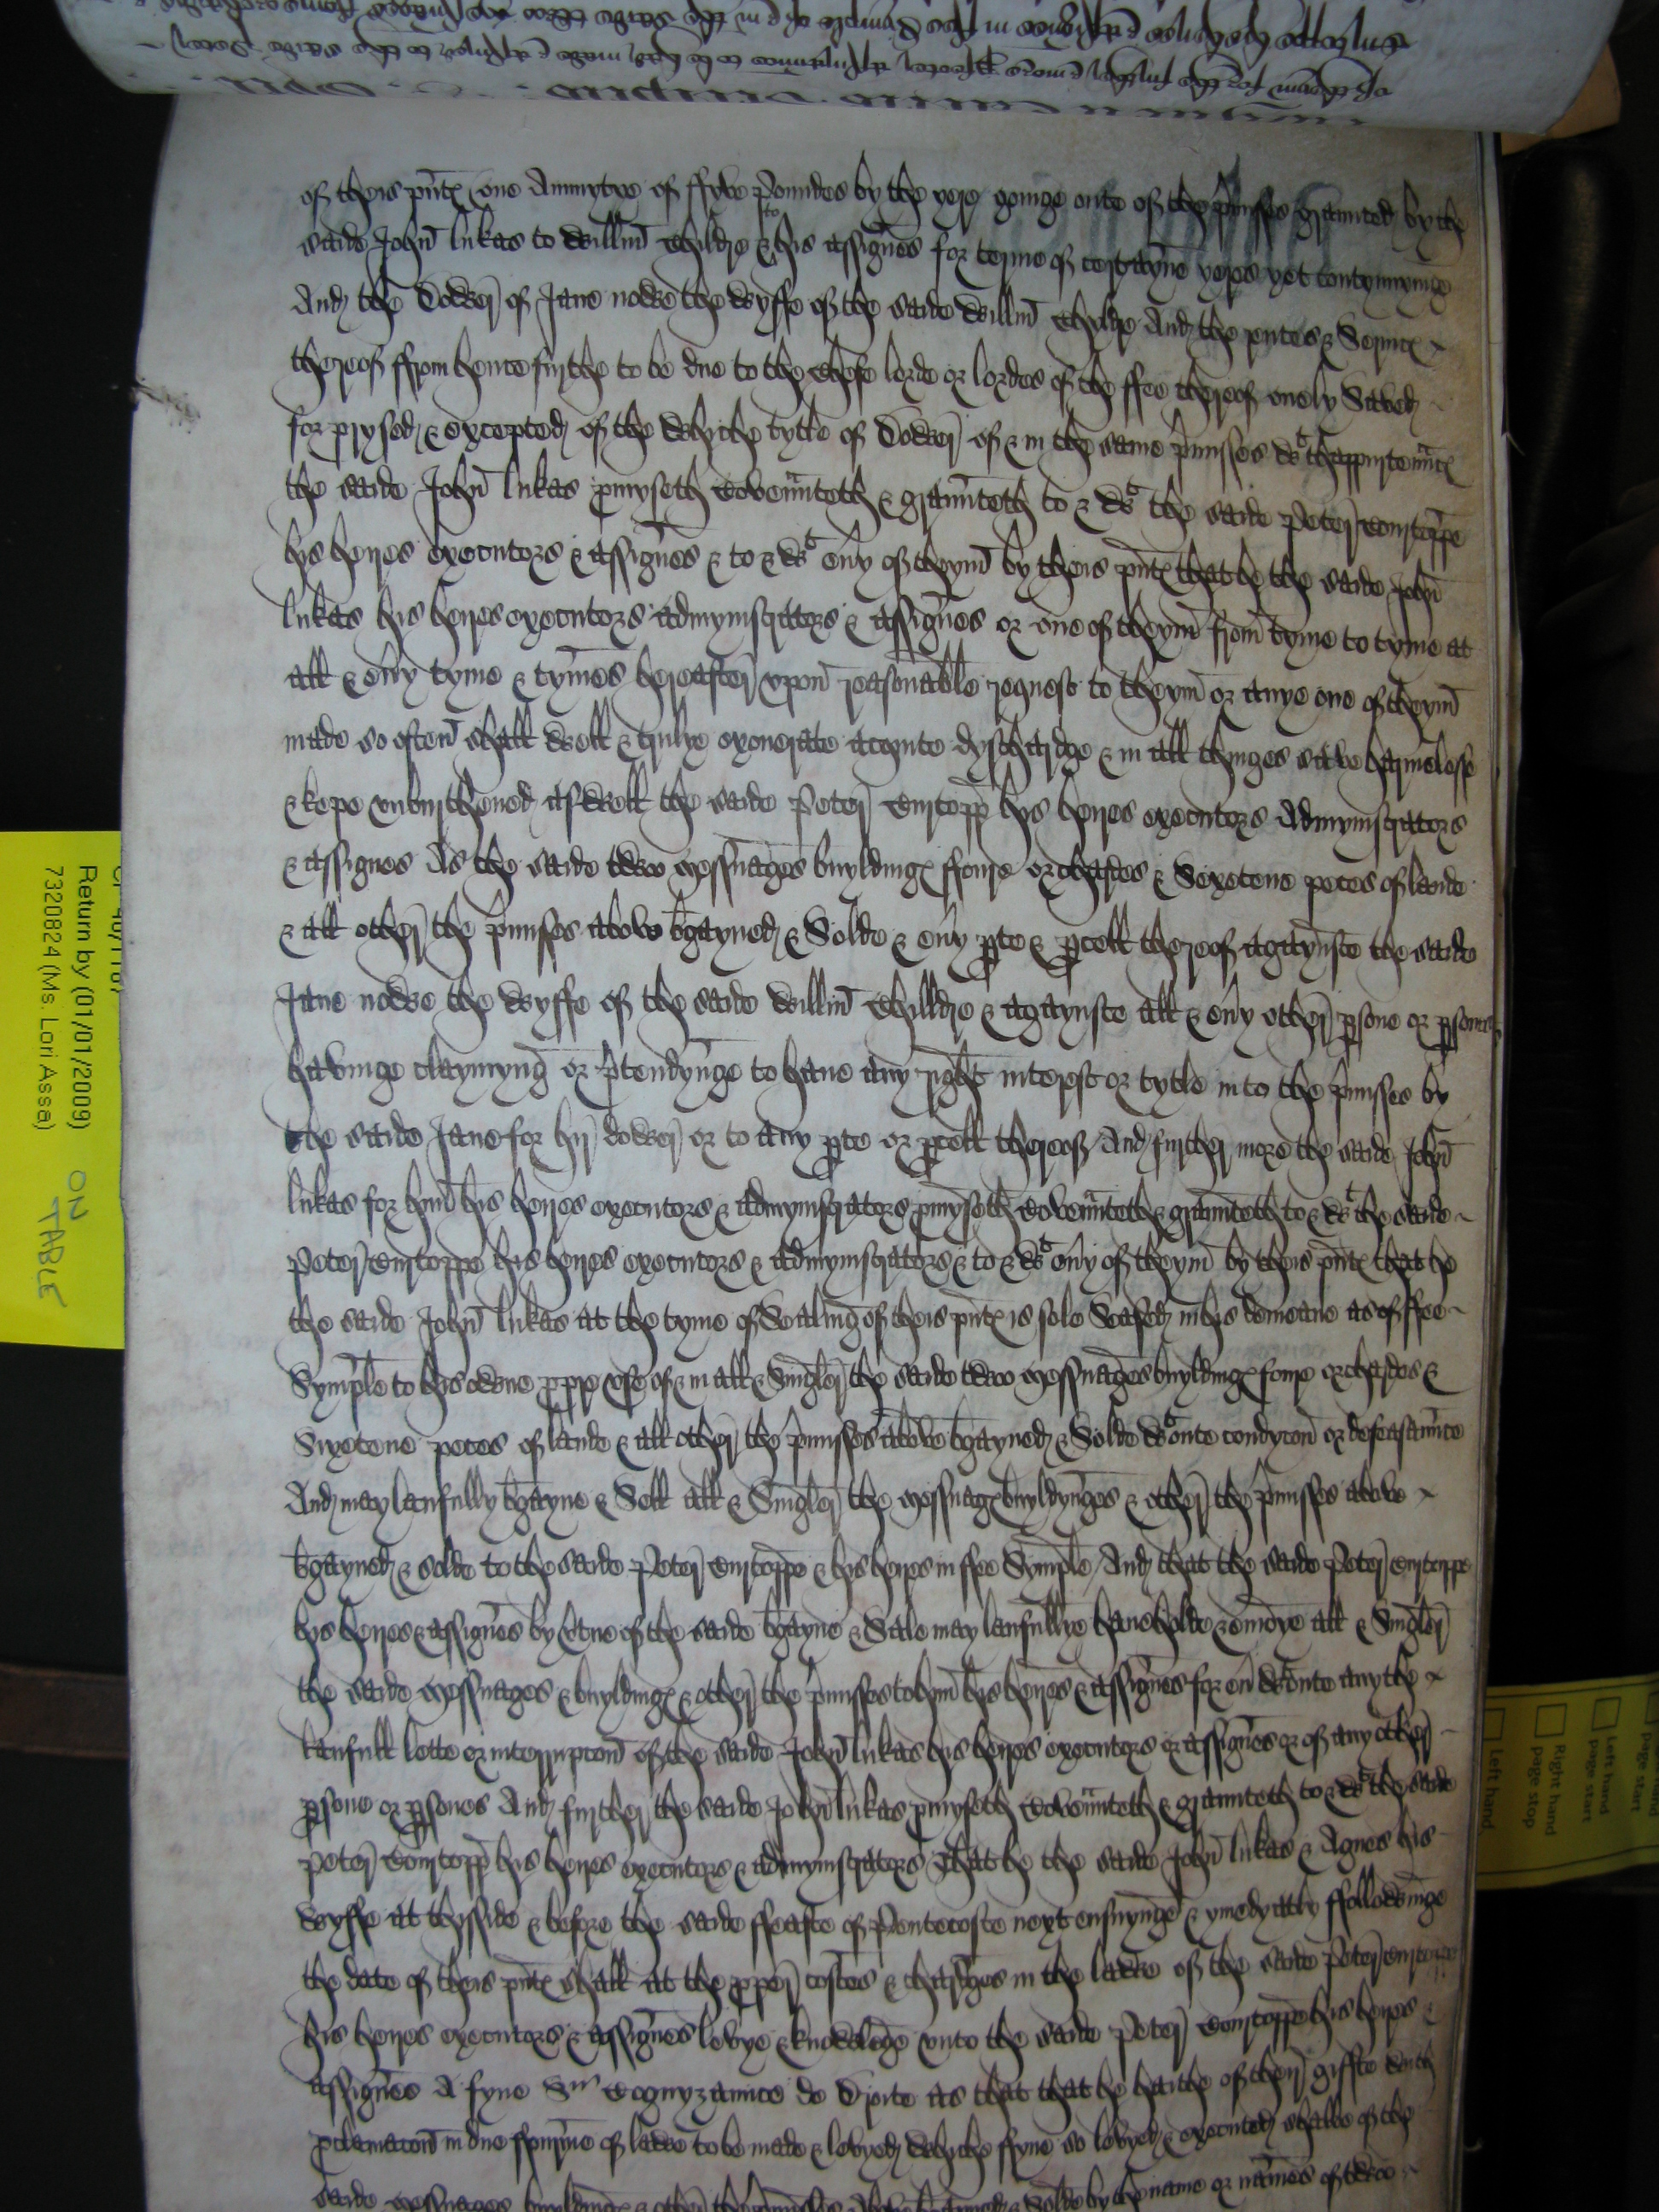 of theis pñtes one Annuytye of ffyve Poundes by the yere goinge oute of the p'misses graunted by the
saide John lukas to Willm̃ Childre & to his assignes for terme of certayne yeres yet contynuynge
And the Dower of Jane nowe the wyffe of the saide Willm̃ Chyldre And the rentes & Servic
thereof ffrom hencefurthe to be due to the Chefe lorde or lordes of the ffee thereof onely Saved
forprysed & excepted of the whiche tytle of Dower of & in the same p'misses wt thappurtennc
the saide John lukas pmyseth Covennteth & graunteth to & wt the saide Peter Courtoppe
his heyres executors & assignes & to & wt eny of theym by theis pñtes that he the saide John
lukas his heyres executors admynistrators & assignes or one of theym from tyme to tyme at
all & eny tyme & tymes hereafter vpon reasonable request to theym or anye one of theym
made so often shall well & trulye exonerate acquite dyschardge & in all thinges save harmelesse
& kepe vnburthened aswell the saide Peter Curtopp his heyres executors Admynistrators
& assignes As the saide twoo messuages buyldinges ffoure orchardes & Sexetene peces of lande
& all other the p'misses above bgayned & Solde & eny pte & pcell thereof agaynste the saide
Jane nowe the wyffe of the saide Willm̃ Chilldre & agaynste all & eny other psone or psones
havinge claymyng or p'tendynge to haue any right interest or tytle into the p'misses by
the saide Jane for hir dower or to any pte or pcell thereof And further more the saide John
lukas for hym his heyres executors & admynistrators pmyseth Covennteth & graunteth to & wt the saide
Peter Curtoppe his heyres executors & admynistrators & to & wt eny of theym by theis pñtes that he
the saide John lukas at the tyme of Sealing of theis pñtes is sole Seased in his demeane as of ffee
Symple to his owne ppp vse of & in all & Singler the saide twoo messuages buyldinges foure orchardes &
Sixetene peces of lande & all other the p'misses above bgayned & Solde wtoute condycon or defeasannce
And may laufully bgayne & Sell all & Singler the messuages buyldynges & other the p'misses above
bgayned & solde to the saide Peter Curtoppe & his heyres in ffee Symple And that the saide Peter Curtoppe
his heyres & assignes by vtue of the saide bgayne & Sale may laufullye haue holde & enioye all & Singler
the saide messuages & buyldinges & other the p'misses to hym his heyres & assignes for eñ wtoute anythe
laufull lette or interrupcon of the saide John lukas his heyres executors or assignes or of any other
psone or psones And further the saide John lukas pmyseth Covennteth & graunteth to & wt the saide
Peter Courtopp his heyres executors & admynistrators That he the saide John lukas & Agnes his
wyffe at thysside & before the saide ffeaste of Pentecoste next ensuynge & ymedyatly ffollowinge
the date of theis pñtes shall at the pper costes & chardges in the lawe of the saide Peter Curtoppe
his heyres executors & assignes levye & knowledge vnto the saide Peter Courtoppe his heyres &
assignes A fyne Sur Cognyzaunce de Droite as that that he hathe of their giffte with
pclamacon in due ffourme of lawe to be made & levyed whiche ffyne so levyed & executed shalbe of the
saide messuages buyldinges & other the p'misses above bgayned & Solde by the name or names of twoo
Return by (01/01/2009)
7320824 (Ms. Lori Assa)
ON
TABLE
Left hand
page start
Right hand
page stop
Left hand